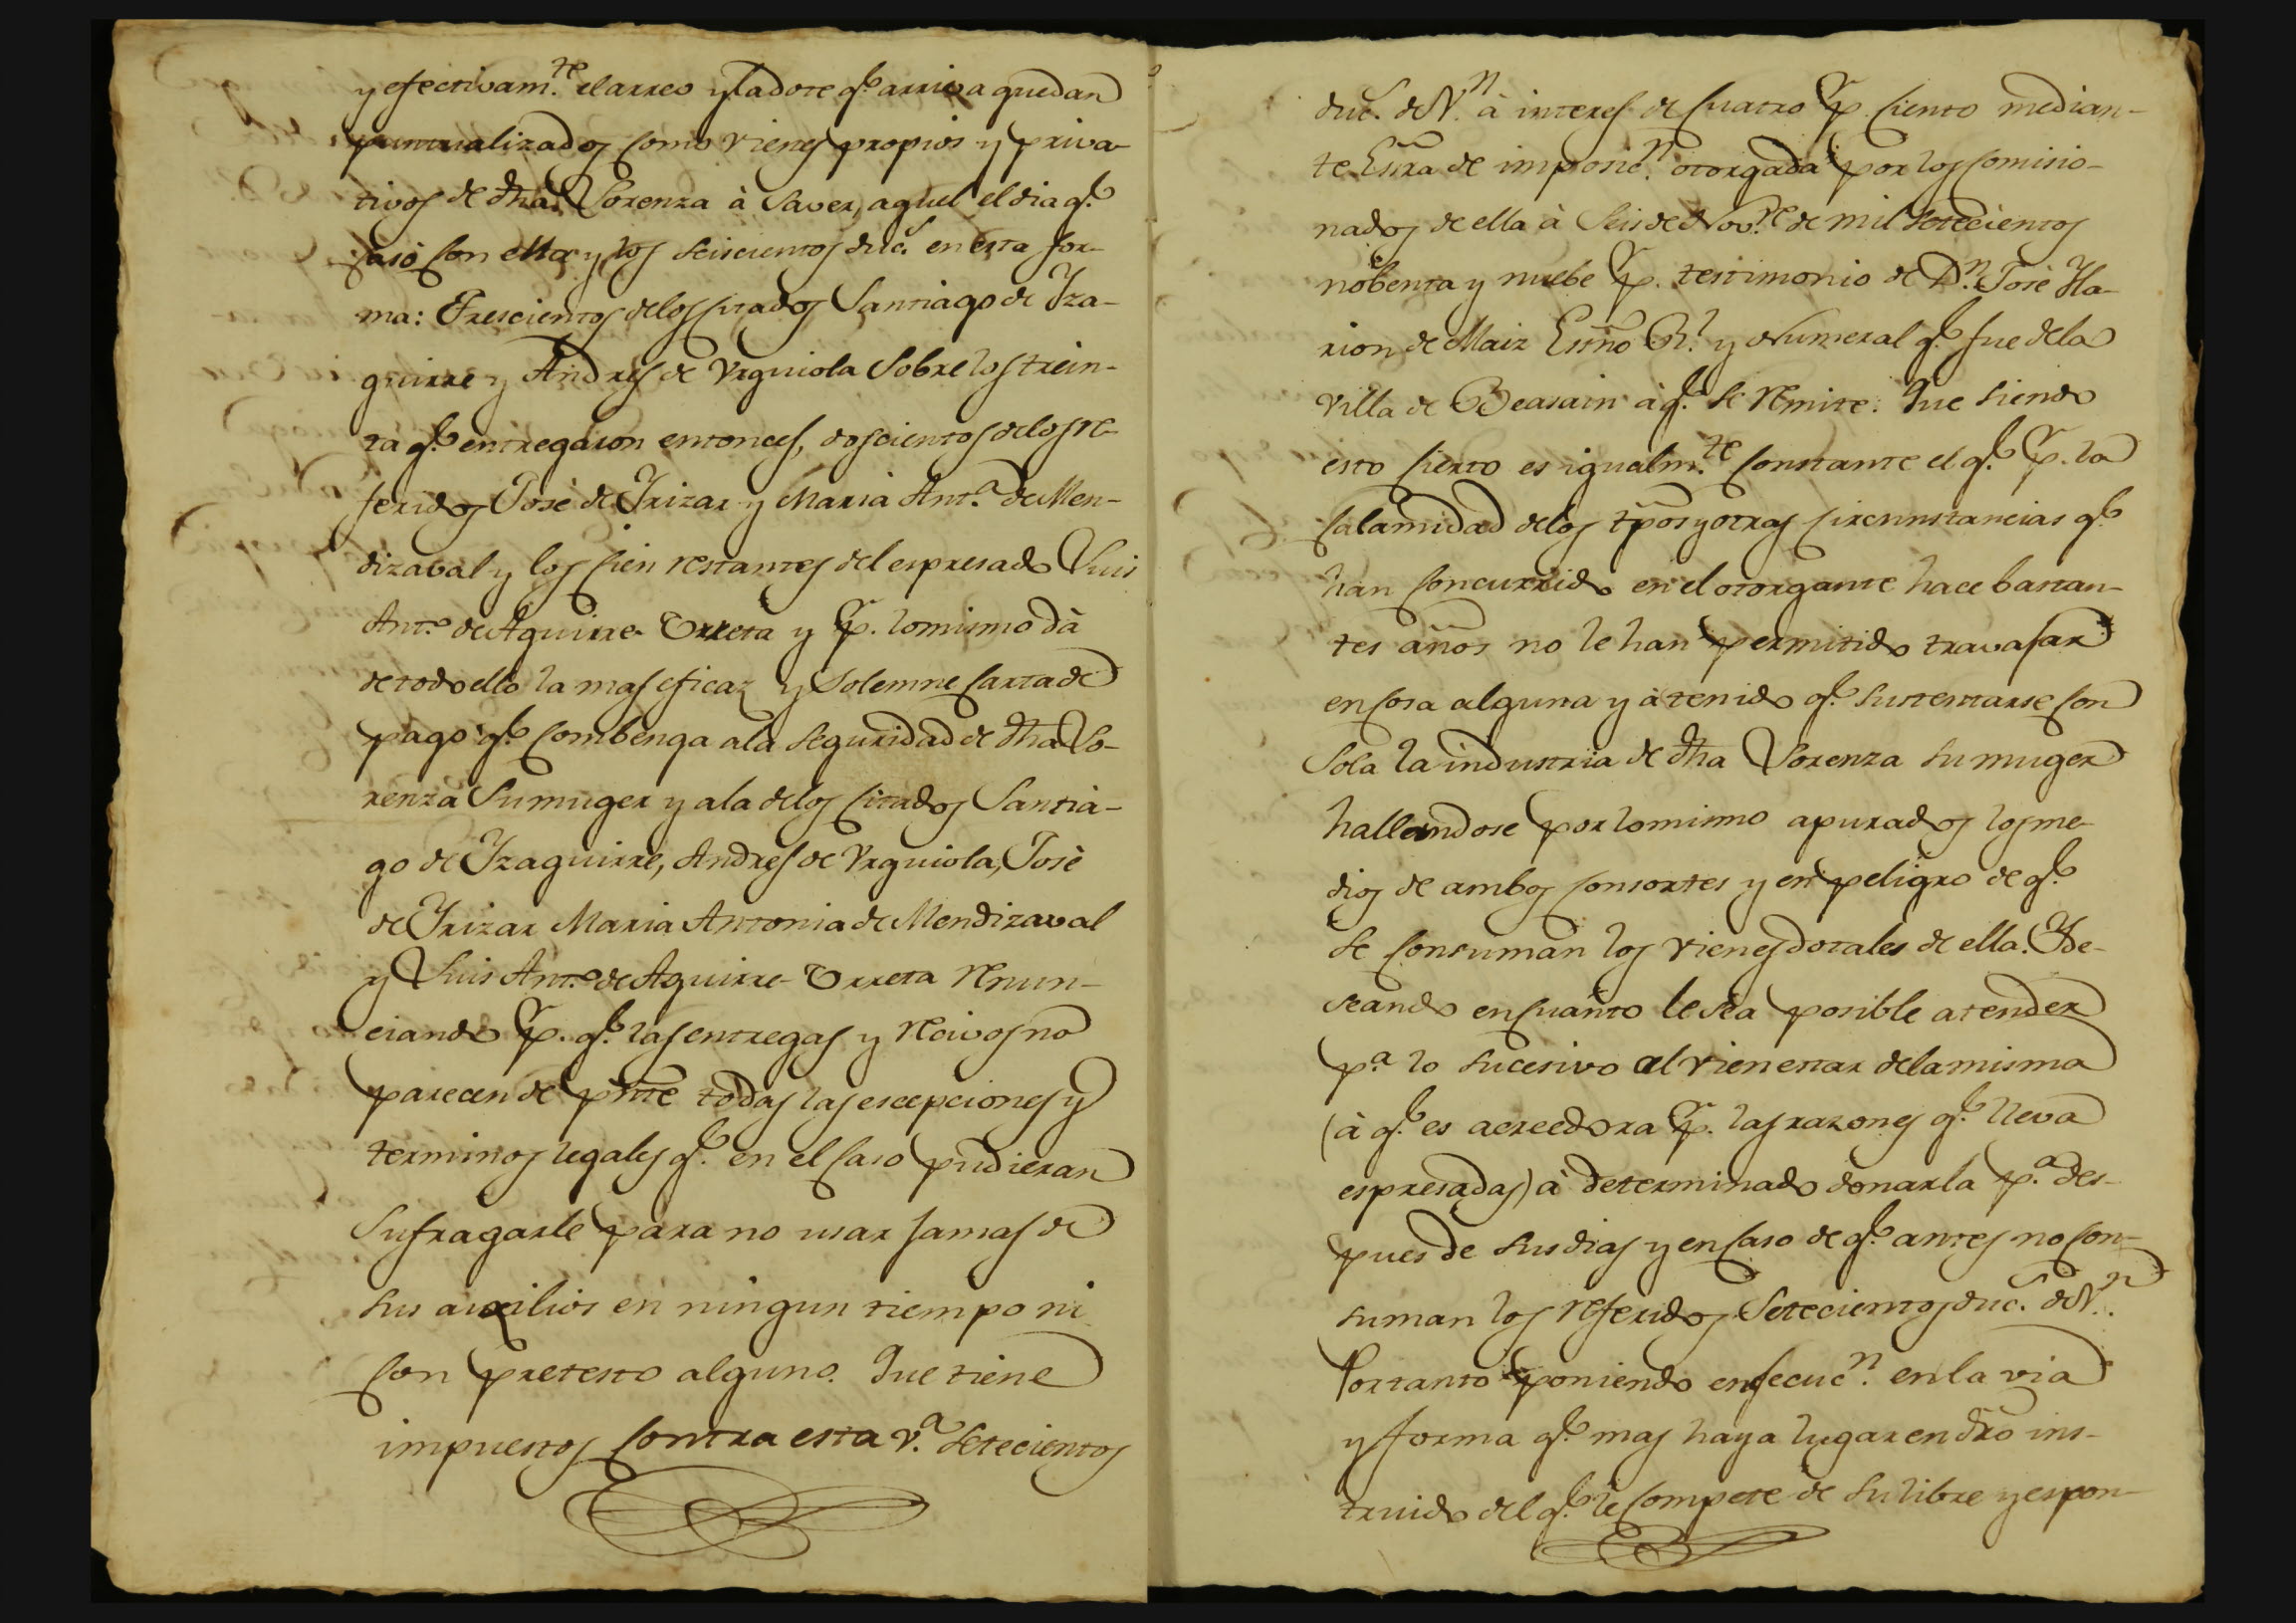 y efectivam.te el arreo y la dote q.e arriva quedan
puntualizados como vienes propios y priva-
tivos de dha Lorenza à saver, aquel el dia q.e
casó con ella y los seiscientos duc.s en esta for-
ma: Trescientos de los citados Santiago de Yza-
guirre y Andres de Vrquiola sobre los trein-
ta q.e entregaron entonces, doscientos de los re-
feridos José de Yrizar y Maria Ant.a de Men-
dizaval y los cien restantes del espresado Luis
Ant.o de Aguirre-Urreta y p.r lo mismo dà
de todo ello la mas eficaz y solemne carta de
pago q.e combenga a la seguridad de dha Lo-
renza su muger y a la de los citados Santia-
go de Yzaguirre, Andres de Vrquiola, José
de Yrizar Maria Antonia de Mendizaval
y Luis Ant.o de Aguirre-Urreta renun-
ciando p.r q.e las entregas y recivos no
parecen de pnte todas las escepciones y
terminos legales q.e en el caso pudieran
sufragarle para no usar jamas de
sus auxilios en ningun tiempo ni
con pretesto alguno. Que tiene
impuestos contra esta v.a setecientos
duc.s de V.n à interes de cuatro p.r ciento median-
te Esrra de imposic.n otorgada por los comisio-
nados de ella à seis de Nov.re de mil setecientos
nobenta y nuebe p.r testimonio de D.n José Yla-
rion de Maiz Essno R.l y Numeral q.e fue de la
villa de Beasain à q.e se remite. Que siendo
esto cierto es igualm.te constante el q.e p.r la
calamidad de los tpos y otras circunstancias q.e
han concurrido en el otorgante hace bastan-
tes años no le han permitido travajar
en cosa alguna y à tenido q.e sustentarse con
sola la industria de dha Lorenza su muger
hallandose por lo mismo apurados los me-
dios de ambos consortes y en peligro de q.e
se consuman los vienes dotales de ella. Y de-
seando en cuanto le sea posible atender
p.a lo sucesivo al vienestar de la misma
(à q.e es acreedora p.r las razones q.e lleva
espresadas) à determinado donarla p.a des-
pues de sus dias y en caso de q.e antes no con-
suman los referidos setecientos duc.s de V.n.
Por tanto poniendo en ejecuc.n en la via
y forma q.e mas haya lugar en dro ins-
truido del q.e le compete de su libre y espon-